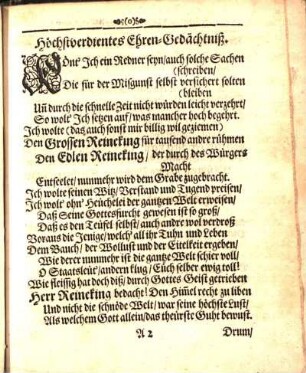 (o)
Höchstverdientes Ehren-Gedächtniß.
KÖnt' Ich ein Redner seyn/auch solche Sachen
(schreiben/
Die für der Mißgunst selbst versichert solten
(bleiben
Uñ durch die schnelle Zeit nicht würden leicht verzehrt/
So wolt' Ich setzen auf/was mancher hoch begehrt.
Ich wolte (das auch sonst mir billig wil geziemen)
Den Grossen Reineking für tausend andre rühmen
Den Edlen Reineking/ der durch des Würgers
Macht
Entseelet/nunmehr wird dem Grabe zugebracht.
Ich wolte seinen Witz/Verstand und Tugend preisen/
Ich wolt' ohn' Heüchelei der gantzen Welt erweisen/
Daß Seine Gottesfurcht gewesen ist so groß/
Daß es den Teüfel selbst/ auch andre wol verdroß
Voraus die Jenige/welch' all ihr Tuhn und Leben
Dem Bauch/ der Wollust und der Eitelkeit ergeben/
Wie derer nunmehr ist die gantze Welt schier voll/
O Staatsleüt'/andern klug/Eüch selber ewig toll!
Wie fleissig hat doch diß/durch Gottes Geist getrieben
Herr Reineking bedacht! Den Him̃el recht zu liben
Und nicht die schnöde Welt/war seine höchste Lust/
Als welchem Gott allein/das theürste Guht bewust.
A 2
Drum/